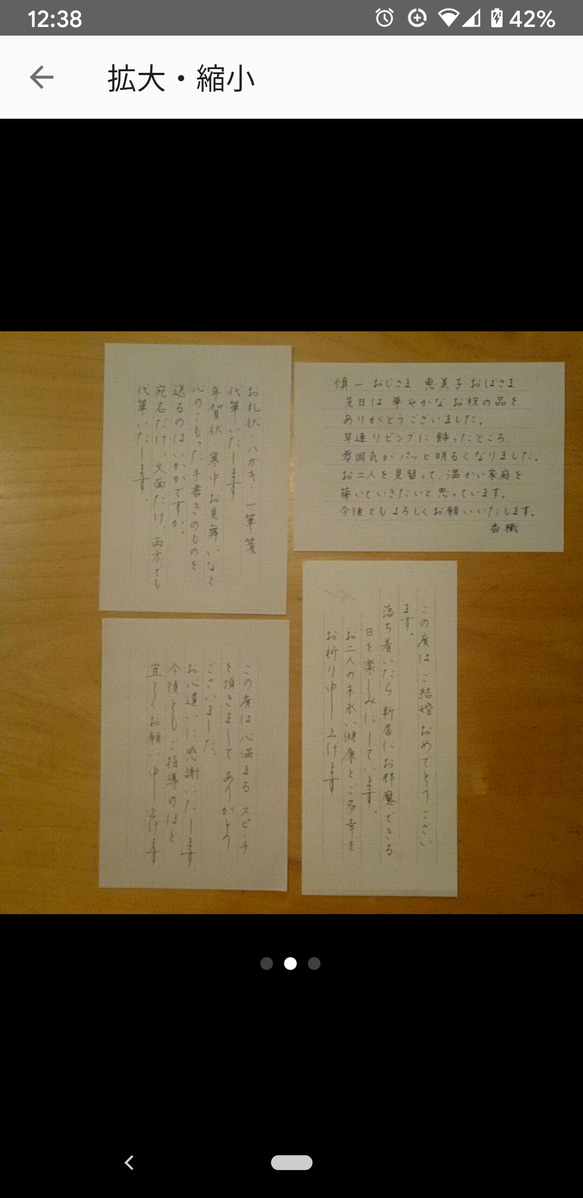 12:38
42%
拡大・縮小
お礼状 ハガキ 一筆箋
代筆いたします。
年賀状 寒中お見舞いなど
心のこもった手書きのものを
送るのはいかがですか。
宛名だけ、文面だけ、両方でも
代筆いたします。
慎一おじさま 恵美子おばさま
先日は華やかなお祝の品を
ありがとうございました。
早速リビングに飾ったところ
雰囲気がパッと明るくなりました。
お二人を見習って、温かい家庭を
築いていきたいと思っています。
今後ともよろしくお願いいたします。
香織
この度は心温まるスピーチ
を頂きまして ありがとう
ございました。
お心遣いに感謝いたします
今後ともご指導のほど
宜しくお願い申し上げます。
この度はご結婚おめでとうござい
ます。
落ち着いたら新居にお邪魔できる
日を楽しみにしています。
お二人の末永い健康とご多幸を
お祈り申し上げます